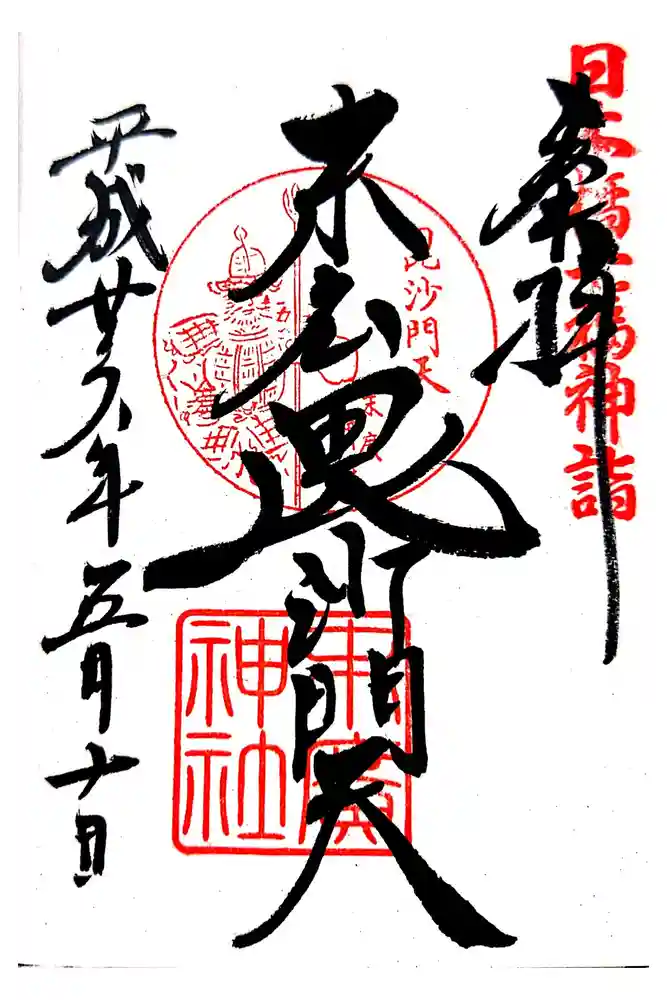 日本橋七福神詣
奉拝
末広毘沙門天
毘沙門天
末廣
末廣神社
平成廿六年五月十日